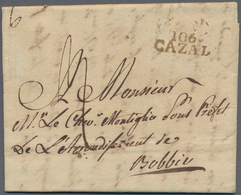 106
CAZAL
A Monsieur
M.r Le Chev.r Montiglio Sous Préfet
De L'Arrondissement de
Bobbio